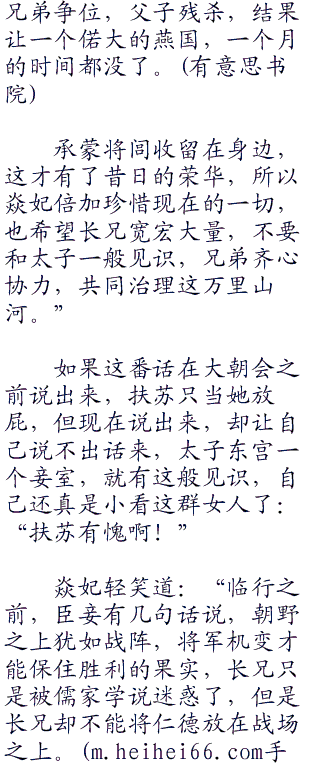 兄弟争位，父子残杀，结果
让一个偌大的燕国，一个月
的时间都没了。(有意思书
院)
承蒙将闾收留在身边，
这才有了昔日的荣华，所以
焱妃倍加珍惜现在的一切，
也希望长兄宽宏大量，不要
和太子一般见识，兄弟齐心
协力，共同治理这万里山
河。”
如果这番话在大朝会之
前说出来，扶苏只当她放
屁，但现在说出来，却让自
己说不出话来，太子东宫一
个妾室，就有这般见识，自
己还真是小看这群女人了：
“扶苏有愧啊！”
焱妃轻笑道：“临行之
前，臣妾有几句话说，朝野
之上犹如战阵，将军机变才
能保住胜利的果实，长兄只
是被儒家学说迷惑了，但是
长兄却不能将仁德放在战场
之上。(m.heihei66.com手